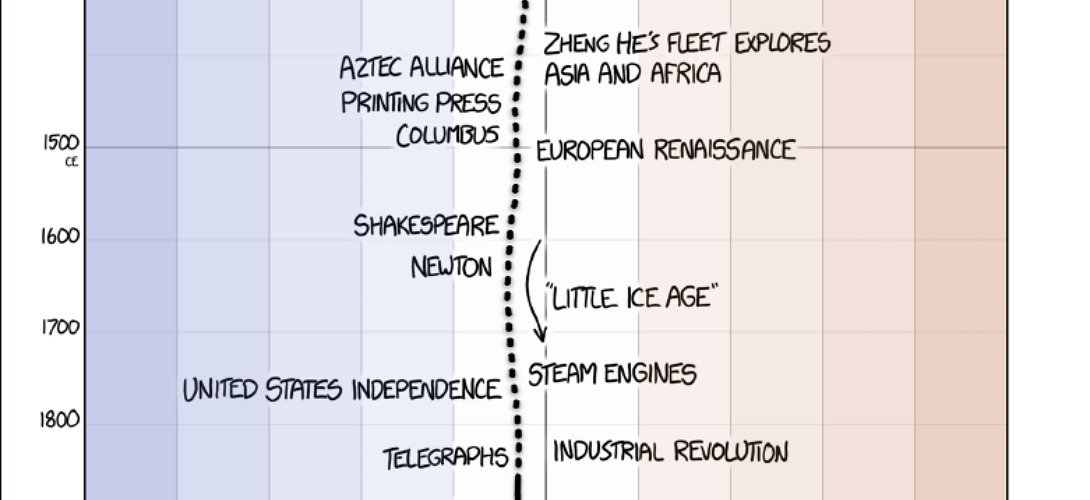 ZHENG HE'S FLEET EXPLORES
ASIA AND AFRICA
AZTEC ALLIANCE
PRINTING PRESS
COLUMBUS
1500
CE
EUROPEAN RENAISSANCE
SHAKESPEARE
1600
NEWTON
"LITTLE ICE AGE"
1700
STEAM ENGINES
UNITED STATES INDEPENDENCE
1800
TELEGRAPHS
INDUSTRIAL REVOLUTION